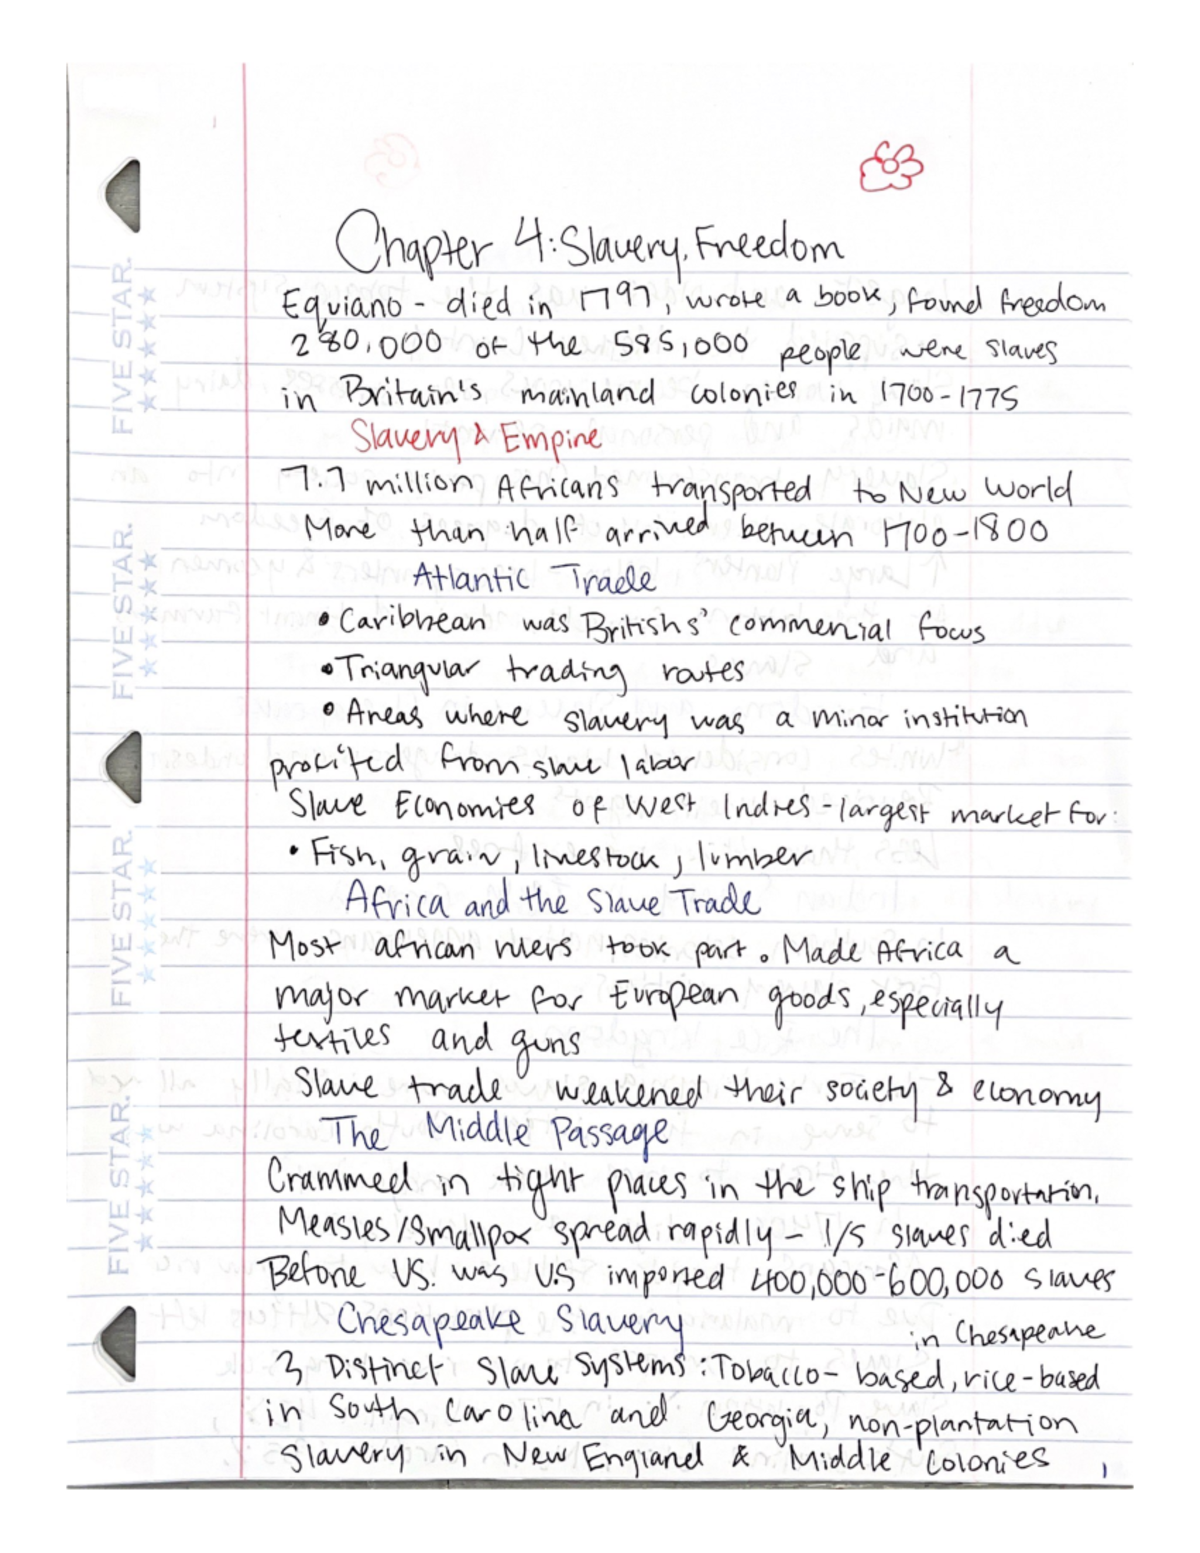 Chapter 4: Slavery, Freedom
Equiano - died in 1797, wrote a book, found freedom
280,000 of the 585,000 people were slaves
in Britain's mainland colonies in 1700-1775
Slavery & Empire
7.7 million Africans transported to New World
More than half arrived between 1700-1800
Atlantic Trade
• Caribbean was British's' commercial focus
• Triangular trading routes
• Areas where slavery was a minor institution
profited from slave labor
Slave Economies of West Indies - largest market for:
• Fish, grain, livestock, lumber
Africa and the Slave Trade
Most african rulers took part. Made Africa a
major market for European goods, especially
textiles and guns
Slave trade weakened their society & economy
The Middle Passage
Crammed in tight places in the ship transportation.
Measles/Smallpox spread rapidly - 1/5 slaves died
Before US. was US imported 400,000-600,000 slaves
Chesapeake Slavery
in Chesapeake
3 Distinct Slave Systems: Tobacco-based, rice-based
in South Carolina and Georgia, non-plantation
Slavery in New England & Middle Colonies
1
FIVE STAR.
FIVE STAR.
FIVE STAR.
FIVE STAR.